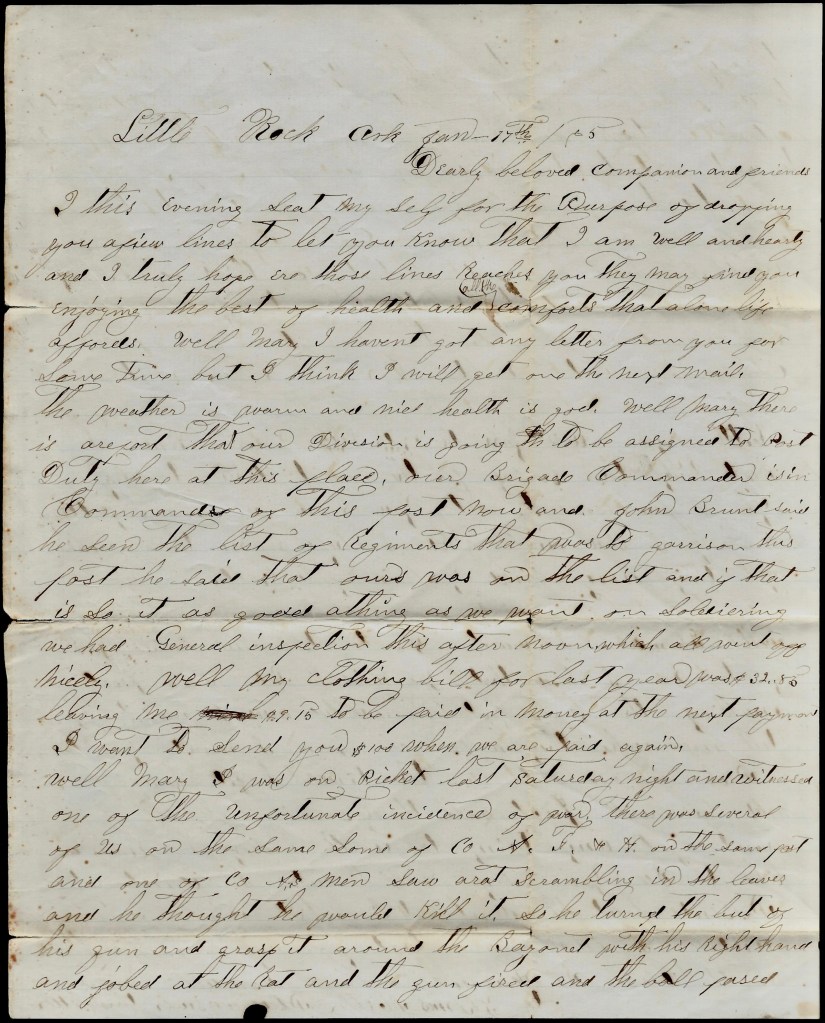 Little Rock Ark Jan - 17th / 65
Dearly beloved Companion and friends
I this Evening Seat my Self for the Purpose of dropping
you afiew lines to let you Know that I am well and hearty
and I truly hope ere those lines Reaches you they may find you
Enjoying the best of health and all the comforts that alone life
affords. Well Mary I havent got any letter from you for
Some Time but I think I will get one the next mail.
the weather is warm and nice health is god. Well Mary There
is areport that our Division is going to be assigned to Post
Duty here at this place, our Brigade Commander is in
Command of This post now and John Brunt said
he seen the list of Regiments that was to garrison this
post he said that ours was on the list and if that
is So it as good athing as we want on Soldiering
we had General inspection this after noon, which all went off
Nicely. Well My Clothing bill for last year was $32.,85
leaving me 29.15 to be paid in money at the next payment
I want to Send you $100 when we are paid again,
well Mary I was on Picket last Saturday night and witnessed
one of the Unfortunate incidence of war, there was several
of us on the Same Some of Co A. F. & H. on the same post
and one of Co men Saw arat Scrambling in the leaves
and he thought he would Kill it. So he turnd the but of
his gun and grasp it around the Bayonet with his Right hand
and jobed at the Rat and the gun fired and the ball pased